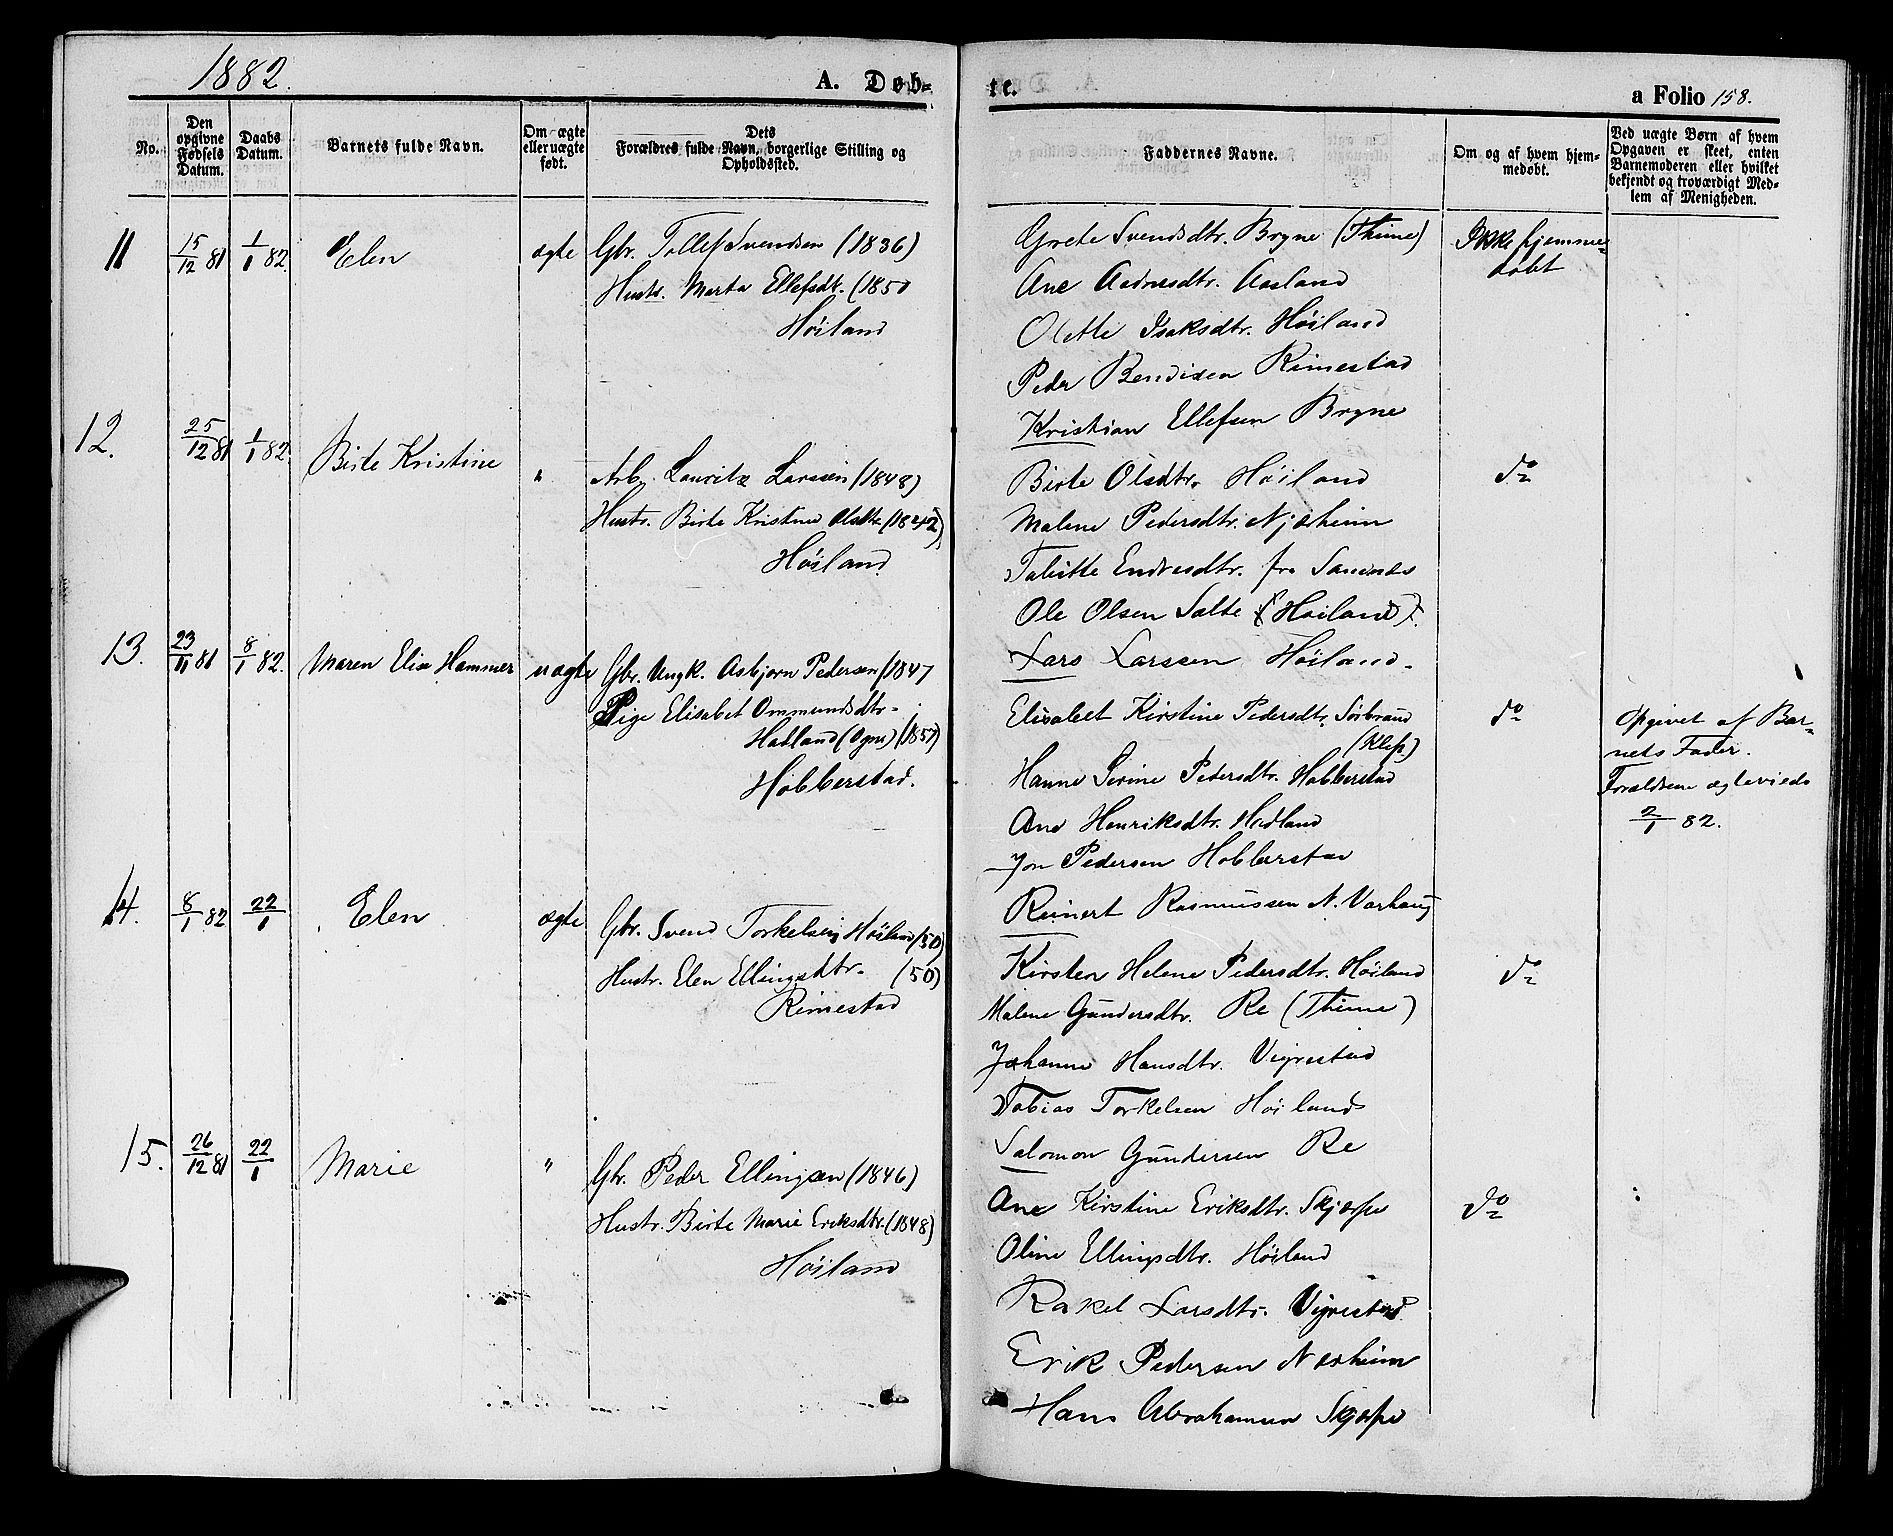 1882.
A. Døb-
No.
Den opgivne Fødsels Datum.
Daabs Datum.
Barnets fulde Navn.
Om ægte eller uægte født.
Dets Forældres fulde Navn, borgerlige Stilling og Opholdsted.
11 15/12 81 1/1 82. Elen ægte Gbr. Tollef Svendsen (1836)
Hustr. Marta Ellefsdtr. (1850
Höiland
12. 25/12 81 1/1 82. Birte Kristine " Arb. Lauritz Larssen (1848)
Hustr. Birte Kristine Olsdtr. (1842)
Höiland
13. 23/11 81 8/1 82. Maren Elise Hammer uægte Gbr. Ungk. Asbjorn Pedersen (1847
Pige Elisabet Ommundsdtr.
Hadland (Ogne) (1857)
Höbberstad.
14. 8/1 82 22/1 Elen ægte Gbr. Svend Torkelsen Höiland (50)
Hustr. Elen Ellingsdtr. (50)
Rimestad
15. 26/12 81 22/1 Marie " Gbr. Peder Ellingsen (1846)
Hustr. Birte Marie Eriksdtr. (1848)
Höiland
te.
a Folio 158.
Faddernes Navne.
Om og af hvem hjem-
medøbt.
Ved uægte Børn af hvem
Opgaven er skeet, enten
Barnemoderen eller hvilket
bekjendt og troværdigt Med-
lem af Menigheden.
Grete Svendsdtr. Bryne (Thime) Ikke hjemme-
döbt
Ane Aadnesdtr. Aasland
Olette Isaksdtr. Höiland
Peder Bendixen Rimestad
Kristian Ellefsen Bryne
Birte Olsdtr. Höiland do
Malene Pedersdtr. Njærheim
Tabitte Endresdtr. fra Sannæs
Ole Olsen Salte (Höiland).
Lars Larssen Höiland.
Elisabet Kirstine Pedersdtr. Sörbrand do Opgivet af Bar-
(Klep)
nets Fader.
Hanne Serine Pedersdtr. Hobberstad
Forældrene ægteviede
Ane Henriksdtr. Hadland 2/1 82.
Jon Pedersen Hobberstad
Reinert Rasmussen N. Varhaug
Kirsten Helene Pedersdtr. Höiland do
Malene Gundersdtr. Re (Thime)
Johanne Hansdtr. Vigrestad
Tobias Torkelsen Höiland
Salomon Gundersen Re
Ane Kirstine Eriksdtr. Skjærpe do
Oline Ellingsdtr. Höiland
Rakel Larsdtr. Vigrestad
Erik Pedersen Nærheim
Hans Abrahamsen Skjærpe